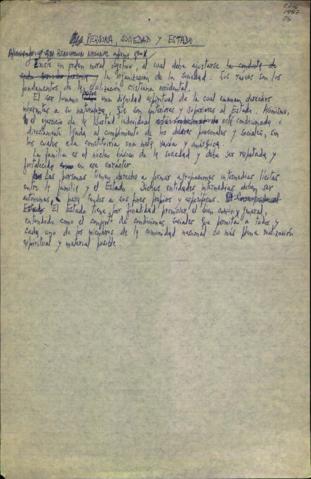 PERSONA, SOCIEDAD Y ESTADO
Existe un orden moral objetivo, al cual debe ajustarse
la organización de la sociedad. Sus raíces son los
fundamentos de la civilización cristiana occidental.
El ser humano posee una dignidad espiritual de la cual emanan derechos
inherentes a su naturaleza, que son anteriores y superiores al Estado. Asimismo,
el ejercicio de la libertad individual está condicionado y
directamente ligado al cumplimiento de los deberes personales y sociales, con
los cuales ella constituiría una
La familia es el núcleo básico de la sociedad y debe ser respetada y
fortalecida en ese carácter.
Las personas tienen derecho a formar agrupaciones intermedias lícitas
entre la familia y el Estado. Dichas entidades intermedias deben ser
autónomas, para tender a sus fines propios y específicos.
El Estado tiene por finalidad promover el bien común y general,
entendido como el conjunto de condiciones sociales que permita a todos y
cada uno de los miembros de la comunidad nacional su más plena realización
espiritual y material posible